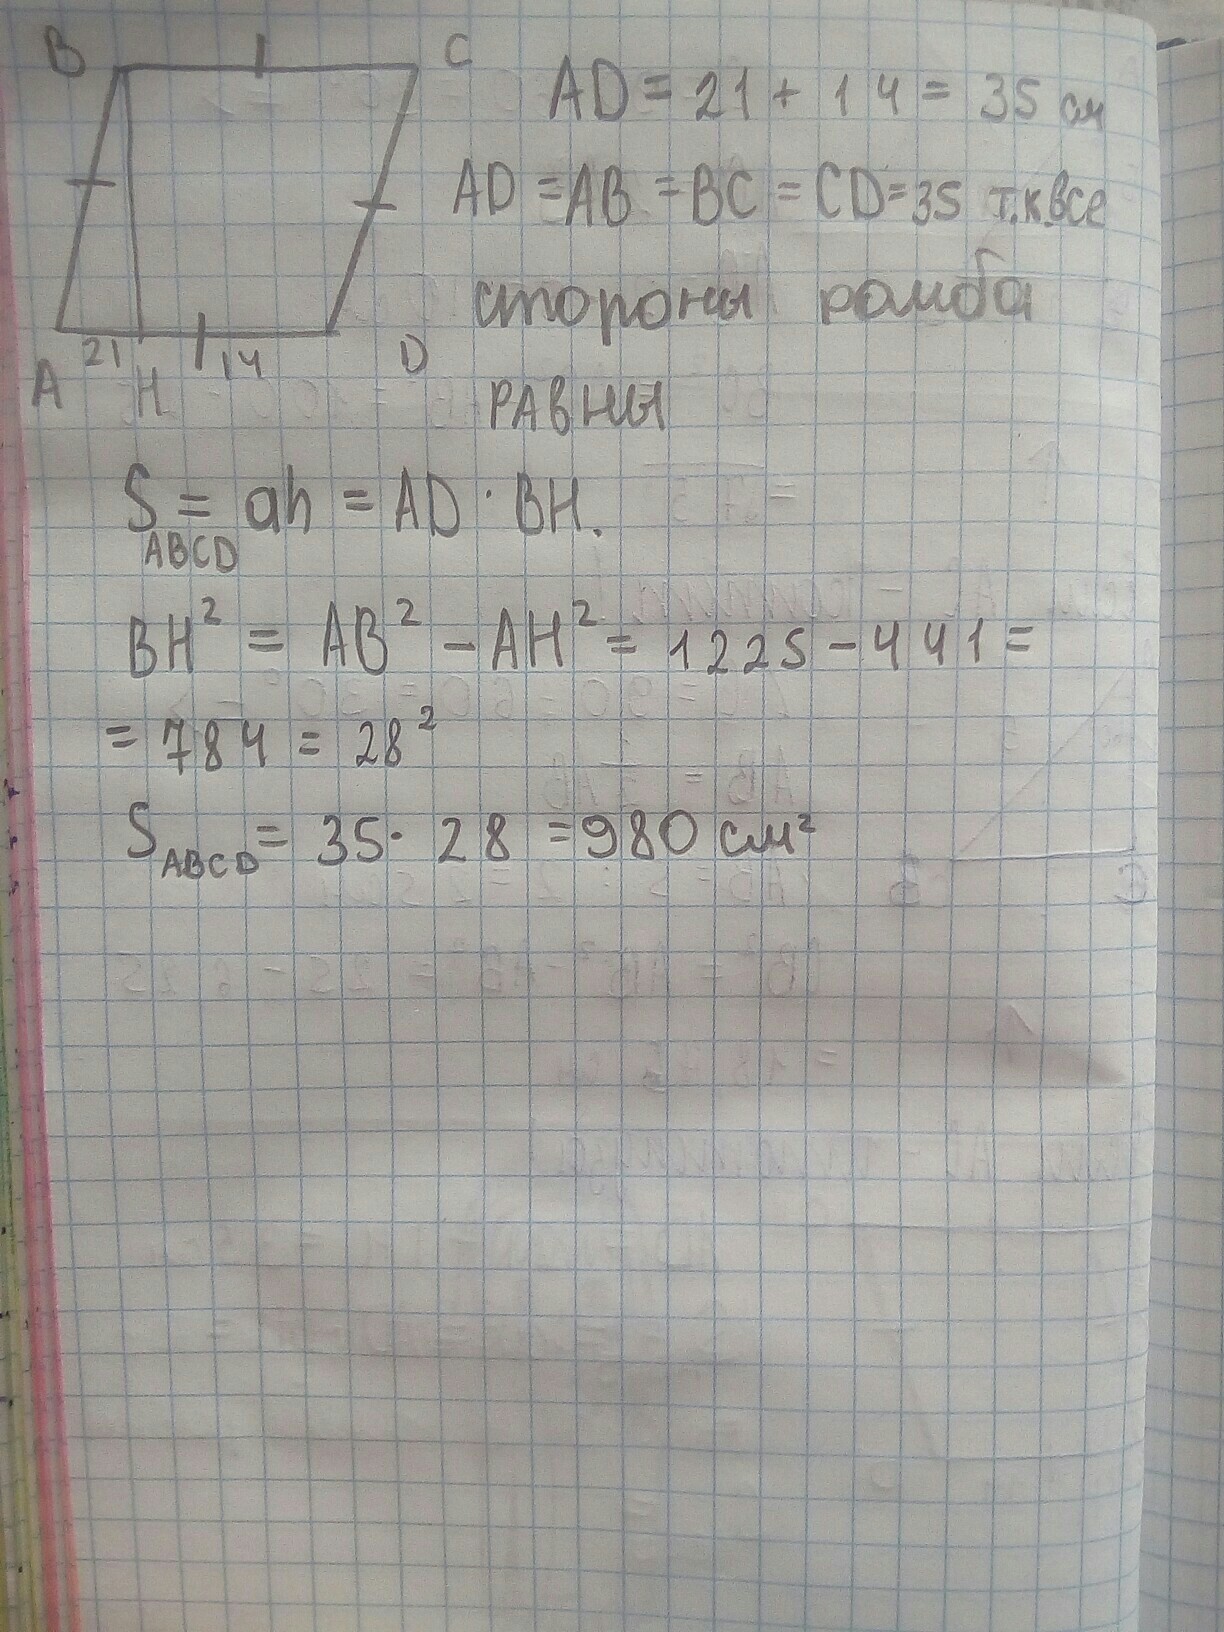 B C
AD = 21 + 14 = 35 см
AD = AB = BC = CD = 35 т.к все
стороны ромба
равны
21 14 D
A H
S ABCD = ah = AD · BH.
BH² = AB² - AH² = 1225 - 441 =
= 784 = 28²
S ABCD = 35 · 28 = 980 см²